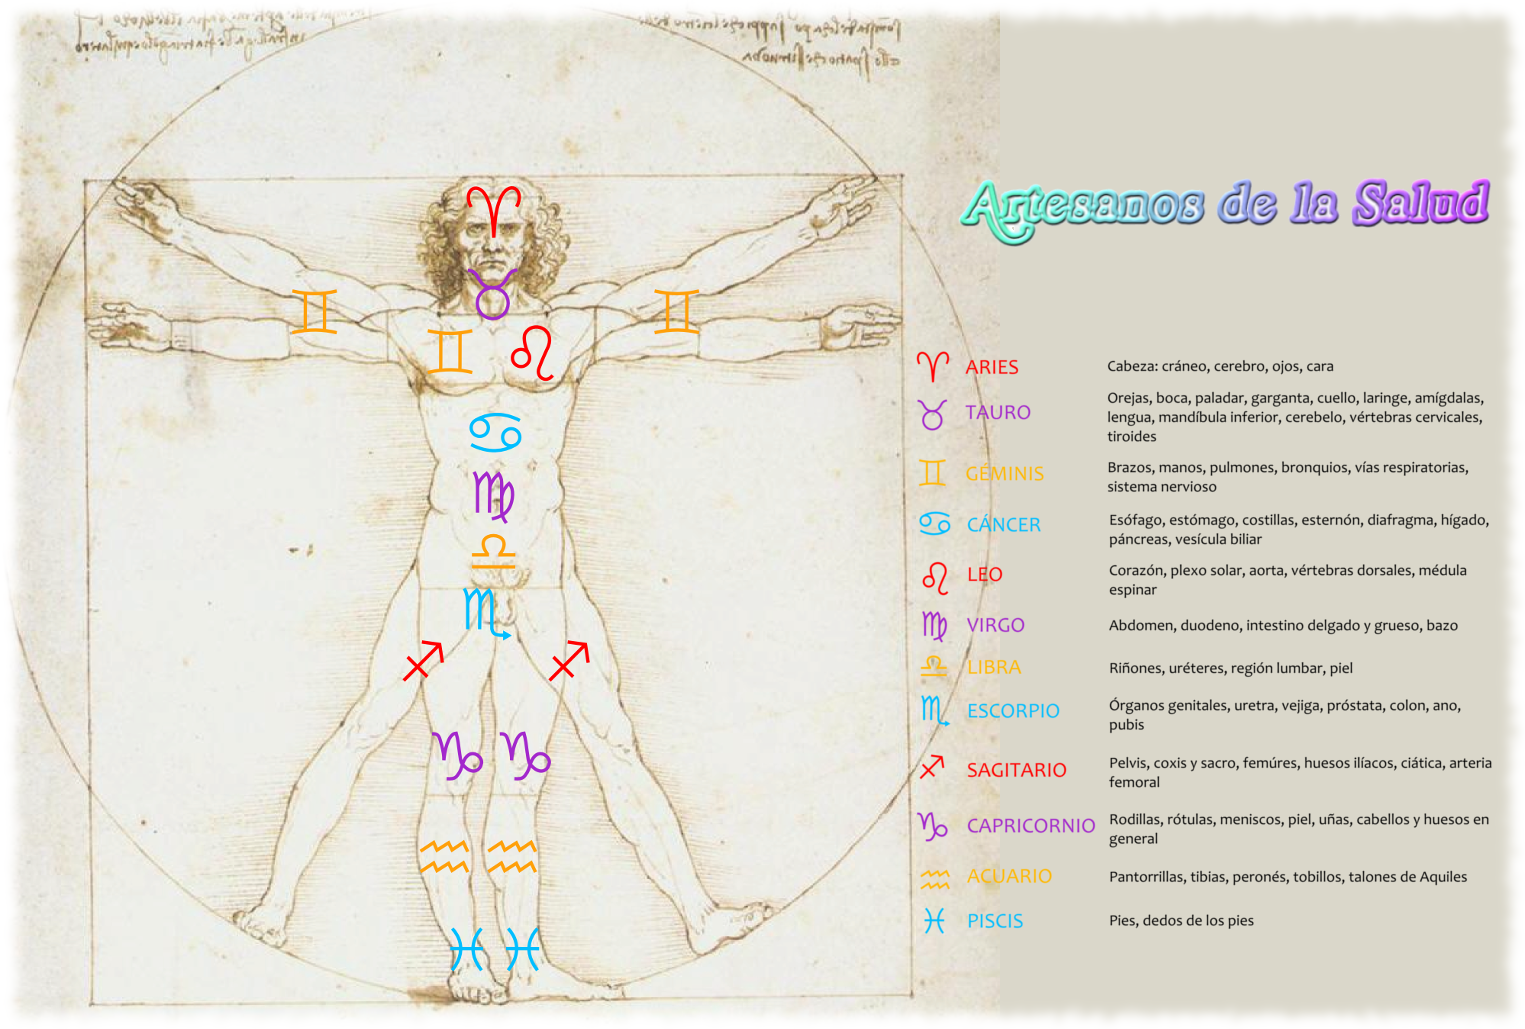 Artesanos de la Salud
ARIES
Cabeza: cráneo, cerebro, ojos, cara
TAURO
Orejas, boca, paladar, garganta, cuello, laringe, amígdalas,
lengua, mandíbula inferior, cerebelo, vértebras cervicales,
tiroides
GÉMINIS
Brazos, manos, pulmones, bronquios, vías respiratorias,
sistema nervioso
CÁNCER
Esófago, estómago, costillas, esternón, diafragma, hígado,
páncreas, vesícula biliar
LEO
Corazón, plexo solar, aorta, vértebras dorsales, médula
espinar
VIRGO
Abdomen, duodeno, intestino delgado y grueso, bazo
LIBRA
Riñones, uréteres, región lumbar, piel
ESCORPIO
Órganos genitales, uretra, vejiga, próstata, colon, ano,
pubis
SAGITARIO
Pelvis, coxis y sacro, femúres, huesos ilíacos, ciática, arteria
femoral
CAPRICORNIO
Rodillas, rótulas, meniscos, piel, uñas, cabellos y huesos en
general
ACUARIO
Pantorrillas, tibias, peronés, tobillos, talones de Aquiles
PISCIS
Pies, dedos de los pies